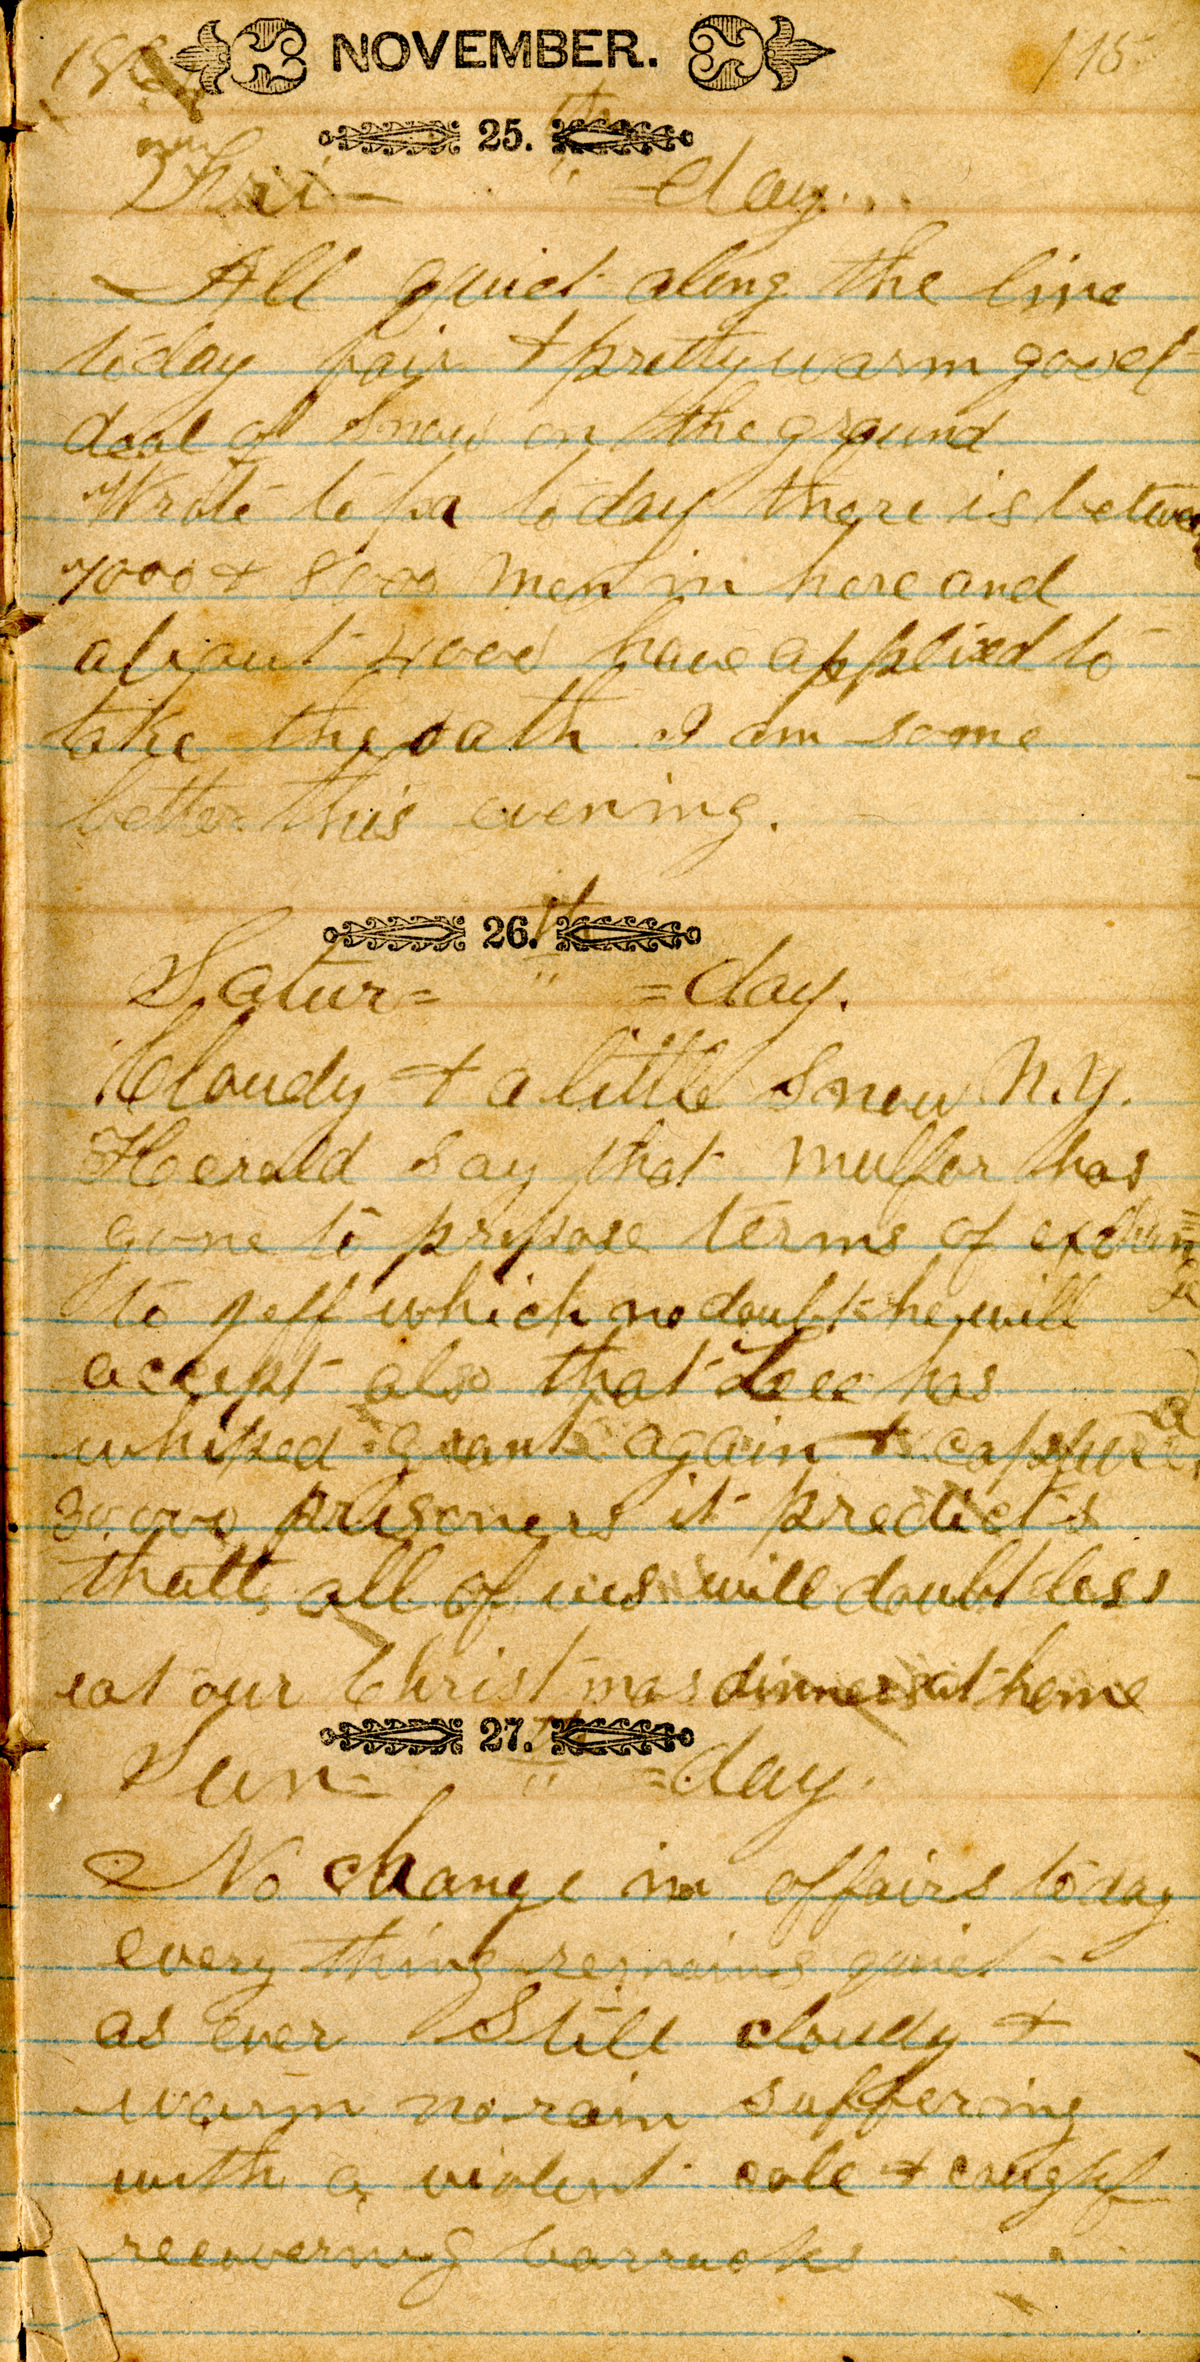 NOVEMBER. 115
25. th
Fri- " -day.
All quiet along the line
today fair & pretty warm good
deal of Snow on the ground
Wrote to pa to day there is between
7000 & 8000 men in here and
about 4000 have applied to
take the oath I am some
better this evening.
26. th
Satur= " =day.
Cloudy & a little Snow N.Y.
Herald Say that has
gone to propose terms of exchange
to Jeff which no doubt he will
accept also that Lee has
whiped grant again & captured
30000 prisoners it predicts
that all of us will doubt less
eat our Christmas dinners at home
27. th
Sun= " =day.
No change in affairs today
every thing remains quiet
as ever Still cloudy &
warm no rain suffering
with a violent cole & cough
recovering barracks